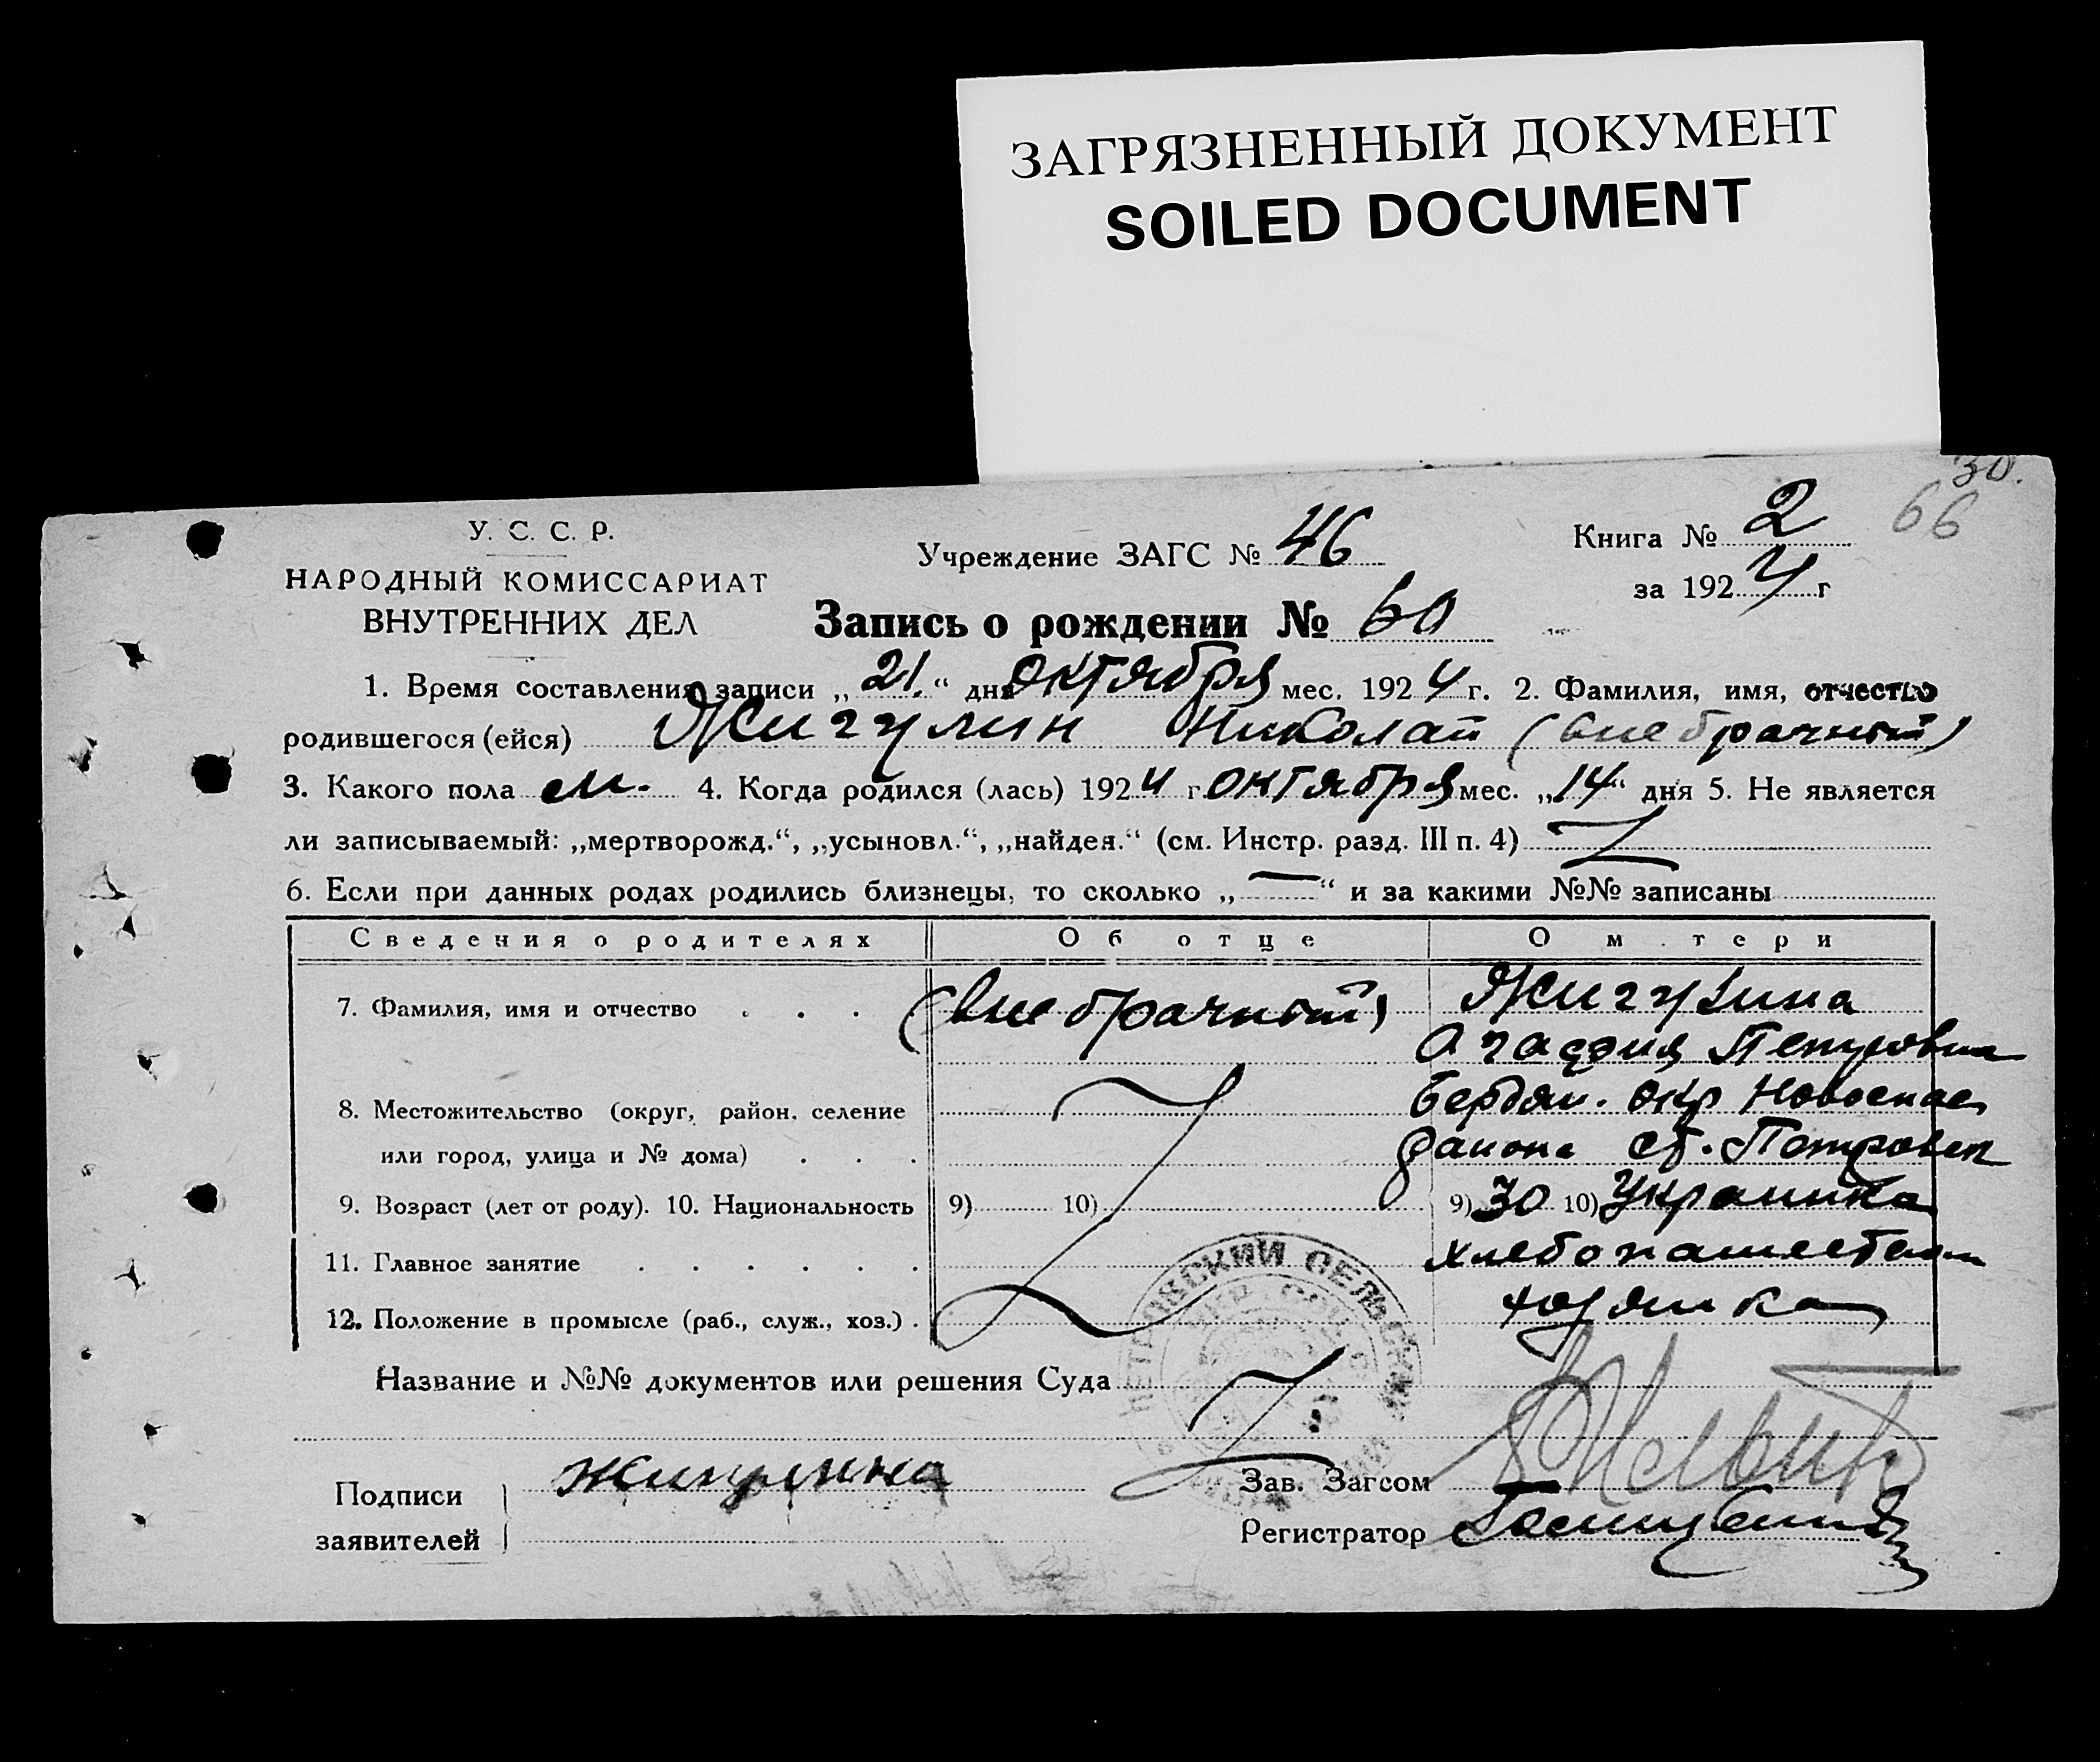 ЗАГРЯЗНЕННЫЙ ДОКУМЕНТ
SOILED DOCUMENT
30.
66
У. С. С. Р.
НАРОДНЫЙ КОМИССАРИАТ
ВНУТРЕННИХ ДЕЛ
Учреждение ЗАГС № 46
Книга № 2
за 1924 г
Запись о рождении № 60
1. Время составления записи „21.“ дня октября мес. 1924 г. 2. Фамилия, имя, отчество
родившегося (ейся) Жигулин Николай (внебрачный)
3. Какого пола м. 4. Когда родился (лась) 1924 г. октября мес. „14“ дня 5. Не является
ли записываемый: „мертворожд.“, „усыновл.“, „найден.“ (см. Инстр. разд. III п. 4)
6. Если при данных родах родились близнецы, то сколько „—“ и за какими №№ записаны
Сведения о родителях Об отце О м тери
7. Фамилия, имя и отчество . . . (внебрачный) Жигулина
Агафия Петровна
8. Местожительство (округ, район, селение Бердян. окр Новоспас
или город, улица и № дома) . . . района с. Петровка
9. Возраст (лет от роду). 10. Национальность 9) 10) 9) 30 10) Украинка
11. Главное занятие . . . . . . хлебопашество
12. Положение в промысле (раб., служ., хоз.) . хозяйка
Название и №№ документов или решения Суда
ПЕТРОВСКИЙ СЕЛЬСКИЙ
Подписи
заявителей
Жигулина
Зав. Загсом
Регистратор